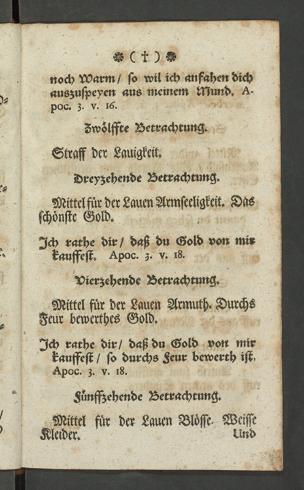 ❋ ( † ) ❋
noch Warm / so wil ich anfahen dich
auszuspeyen aus meinem Mund. A-
poc. 3. v. 16.
Zwölffte Betrachtung.
Straff der Lauigkeit.
Dreyzehende Betrachtung.
Mittel für der Lauen Armseeligkeit. Das
schönste Gold.
Ich rathe dir / daß du Gold von mir
kauffest. Apoc. 3. v. 18.
Vierzehende Betrachtung.
Mittel für der Lauen Armuth. Durchs
Feur bewerthes Gold.
Ich rathe dir / daß du Gold von mir
kauffest / so durchs Feur bewerth ist.
Apoc. 3. v. 18.
Fünffzehende Betrachtung.
Mittel für der Lauen Blösse. Weisse
Kleider.
Und